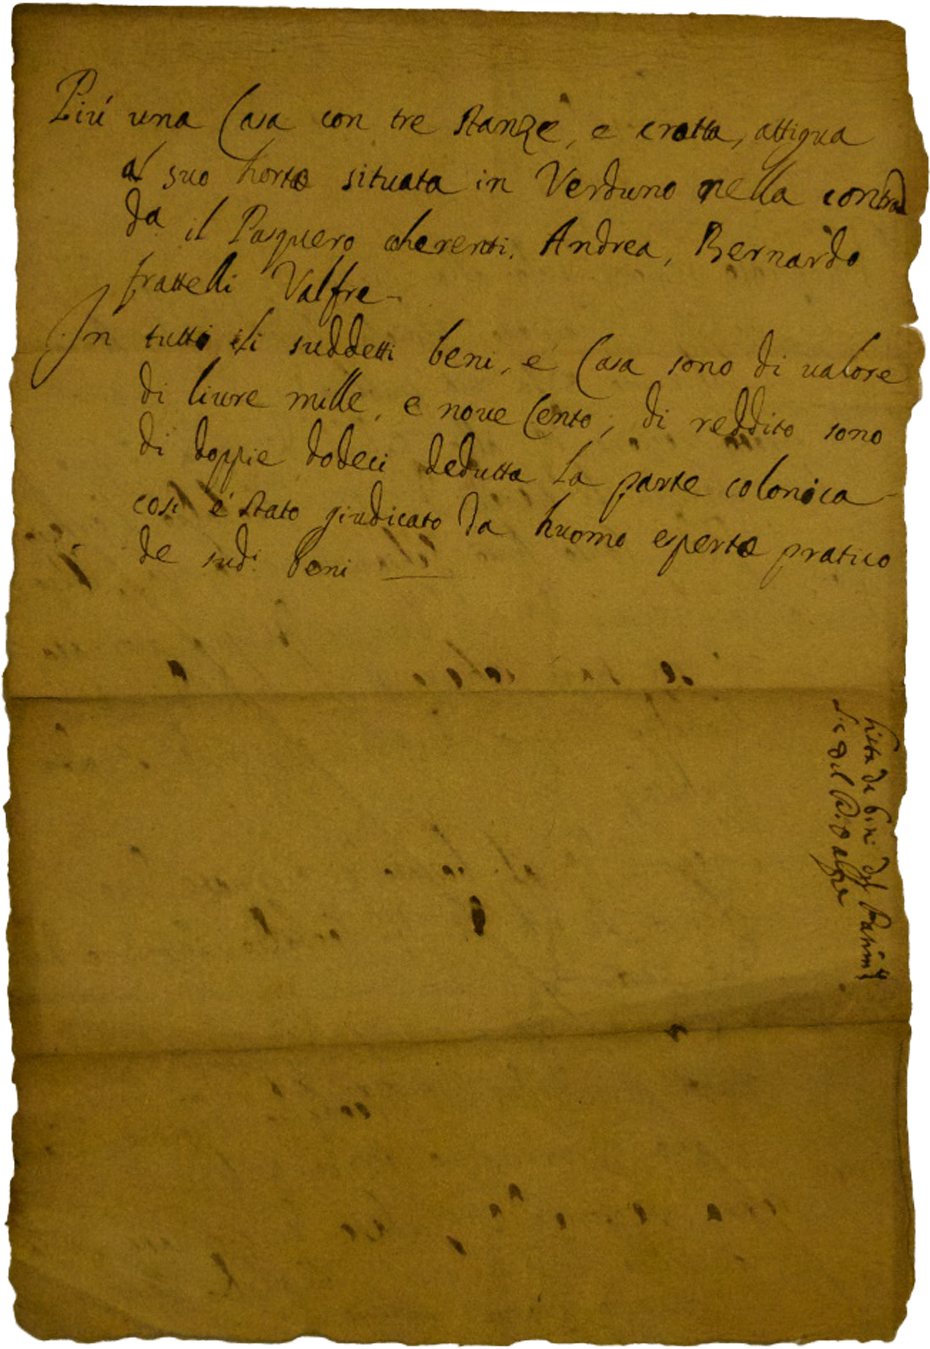 Più una Casa con tre stanze, e crotta, attigua
al suo horto situata in Verduno nella contra
da il Pasquero coherenti, Andrea, Bernardo
frattelli Valfre
In tutto li suddetti beni, e Casa sono di valore
di liure mille, e noue Cento; di reddito sono
di doppie dodeci dedutta la parte colonica
così è stato giudicato da huomo esperto pratico
de sud.i beni
Lista de beni del Patrim.o
del Valfre